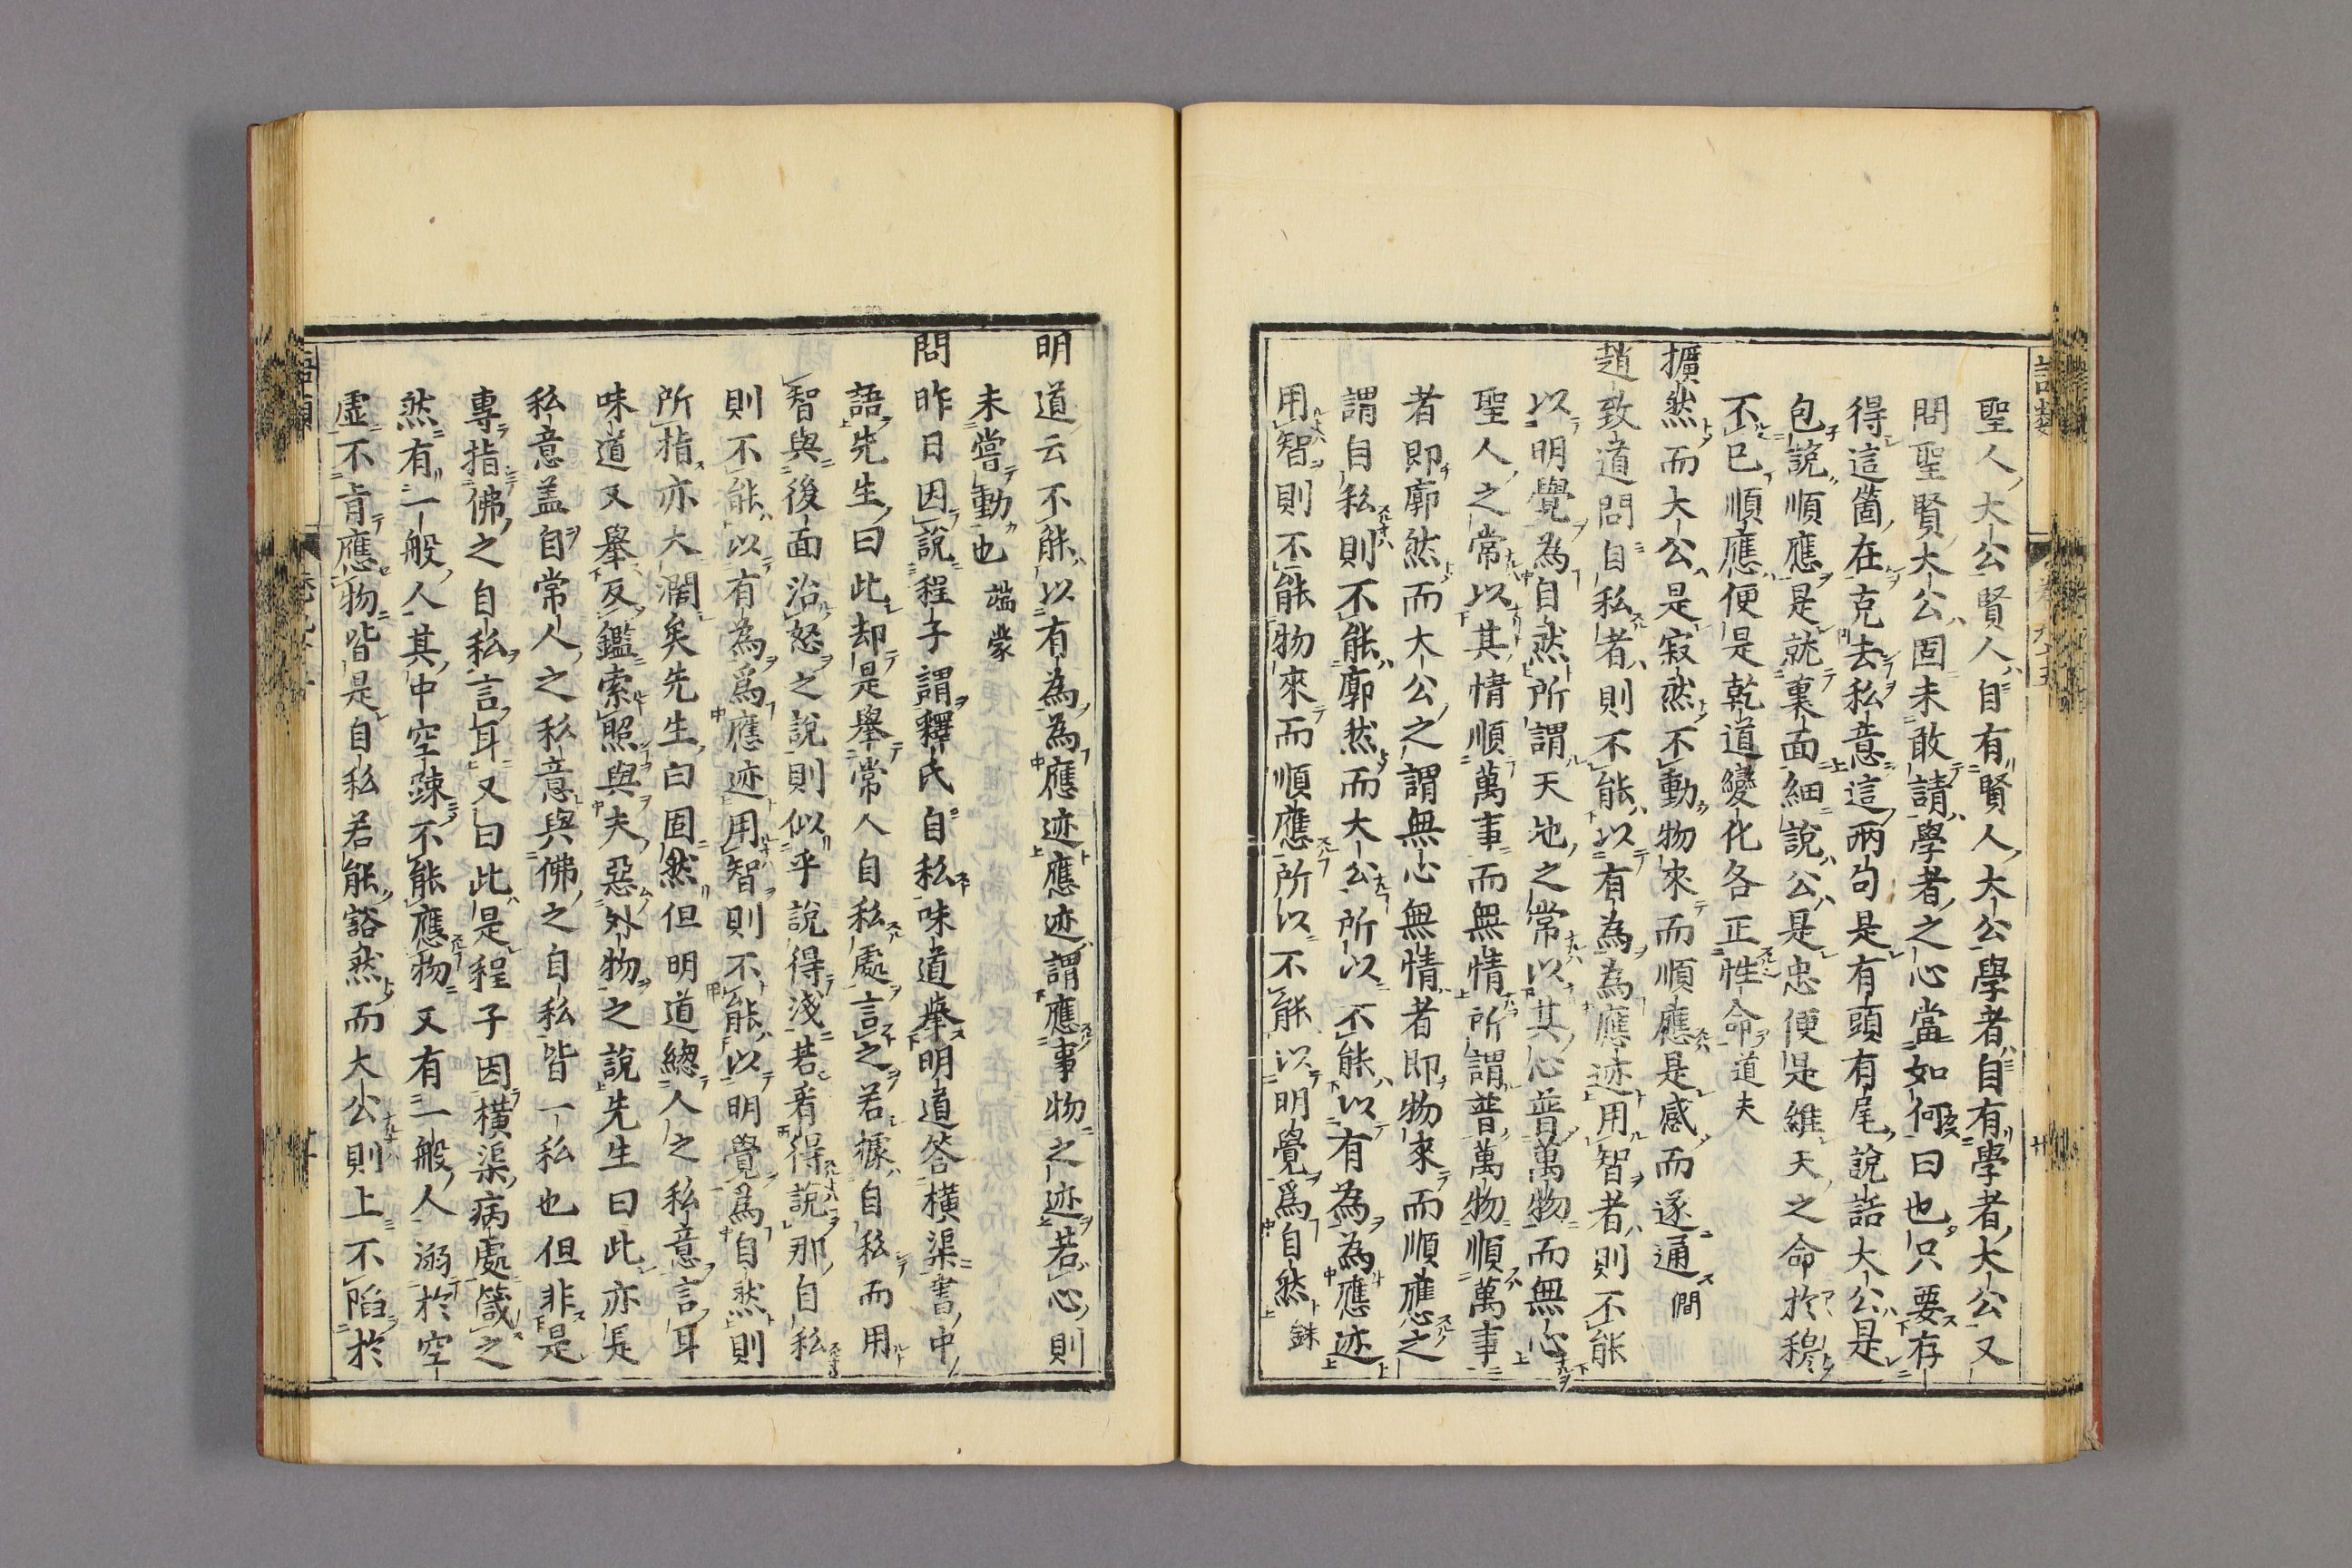 聖人大公賢人自有賢人大公學者自有學者大公又
問聖賢大公固未敢請學者之心當如何曰也只要存
得這箇在克去私意這兩句是有頭有尾說話大公是
包說順應是就裏面細說公是忠便是維天之命於穆
不已順應便是乾道變化各正性命道夫
擴然而大公是寂然不動物來而順應是感而遂通僩
趙致道問自私者則不能以有為為應迹用智者則不能
以明覺為自然所謂天地之常以其心普萬物而無心
聖人之常以其情順萬事而無情所謂普萬物順萬事
者即廓然而大公之謂無心無情者即物來而順應之
謂自私則不能廓然而大公所以不能以有為為應迹
用智則不能物來而順應所以不能以明覺爲自然銖
明道云不能以有為為應迹應迹謂應事物之迹若心則
未嘗動也端蒙
問昨日因說程子謂釋氏自私味道舉明道答橫渠書中
語先生曰此却是舉常人自私處言之若據自私而用
智與後面治怒之說則似乎說得淺若看得說那自私
則不能以有為爲應迹用智則不能以明覺爲自然則
所指亦大濶矣先生曰固然但明道總人之私意言耳
味道又舉反鑑索照與夫惡外物之說先生曰此亦是
私意盖自常人之私意與佛之自私皆一私也但非是
專指佛之自私言耳又曰此是程子因橫渠病處箴之
然有一般人其中空疎不能應物又有一般人溺於空
虛不肯應物皆是自私若能豁然而大公則上不陷於